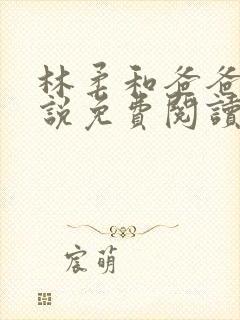 林柔和爸爸
說免費閱讀
宸萌